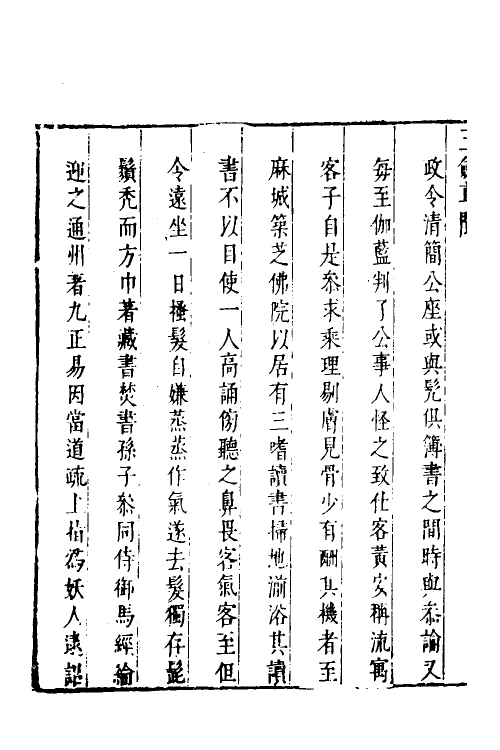 政令清簡公座或與髡俱簿書之間時與參論又
每至伽藍判了公事人怪之致仕客黃安稱流寓
客子自是參求乘理剔膚見骨少有酬其機者至
麻城築芝佛院以居有三嗜讀書掃地湔浴其讀
書不以目使一人高誦傍聽之鼻畏客氣客至但
令遠坐一日搔髮自嫌蒸蒸作氣遂去髮獨存髭
鬚禿而方巾著藏書焚書孫子參同侍御馬經綸
迎之通州著九正易因當道疏上指為妖人逮詔